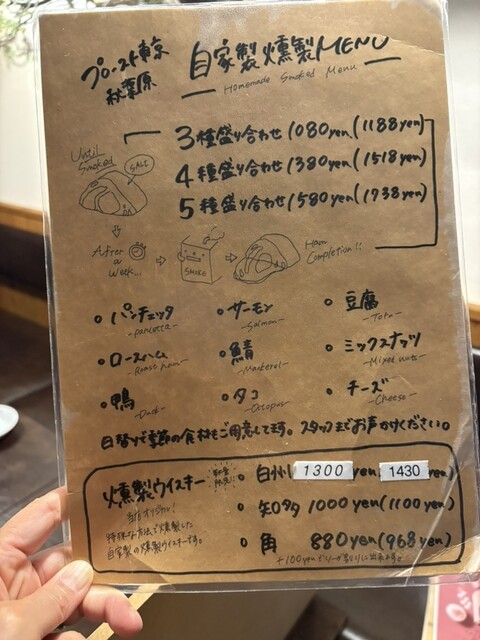 プロースト東京
秋葉原
自家製燻製MENU
Homemade Smoked Menu
3種盛り合わせ 1080yen(1188yen)
4種盛り合わせ 1380yen(1518yen)
5種盛り合わせ 1580yen(1738yen)
Until
Smoked
SALT
After
a
week...
SMOKE
Ham
Completion!!
パンチェッタ
-pancetta-
サーモン
-Salmon-
豆腐
-Tofu-
ロースハム
-Roast ham-
鯖
-Mackerel-
ミックスナッツ
-Mixed nuts-
鴨
-Duck-
タコ
-Octopus-
チーズ
-Cheese-
日替りで季節の食材もご用意してます。スタッフまでお声かけください。
燻製ウイスキー
当店オリジナル!
特殊な方法で燻製した
自家製の燻製ウイスキーです。
白州 1300yen 1430en)
知多 1000yen(1100yen)
角 880yen(968yen)